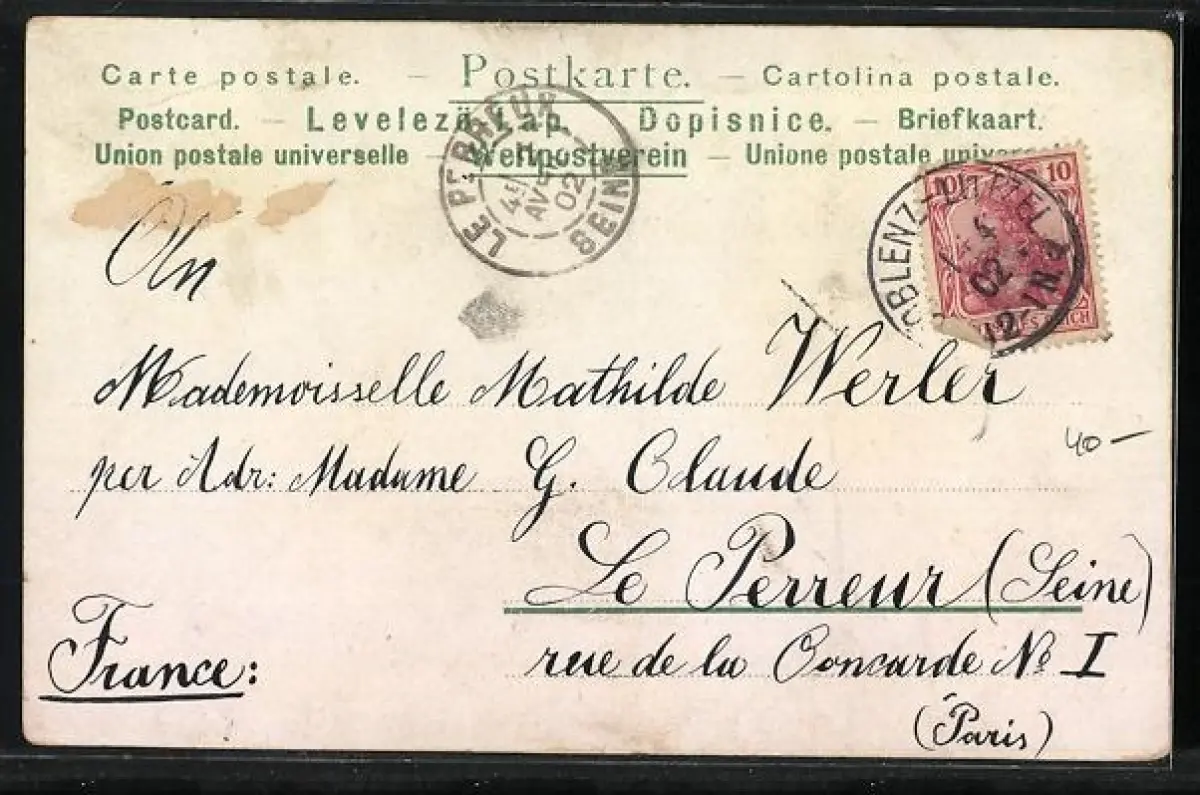 Carte postale. — Postkarte. — Cartolina postale.
Postcard. — Levelező-Lap. — Dopisnice. — Briefkaart.
Union postale universelle — Weltpostverein — Unione postale
LE PERREUX
4E
AVRIL
02
SEINE
10 10
REICH
COBLENZ-LÜTZEL
4
02
12-1 N
An
Mademoisselle Mathilde Werler
per Adr: Madame G. Claude
40—
Le Perreux (Seine)
France:
rue de la Concarde No I
(Paris)